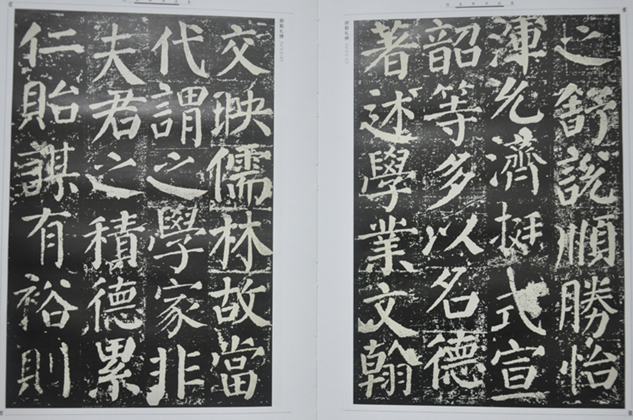 之舒說順勝怡
渾允濟挺式宣
韶等多以名德
著述學業文翰
交映儒林故當
代謂之學家非
夫君之積德累
仁貽謀有裕則